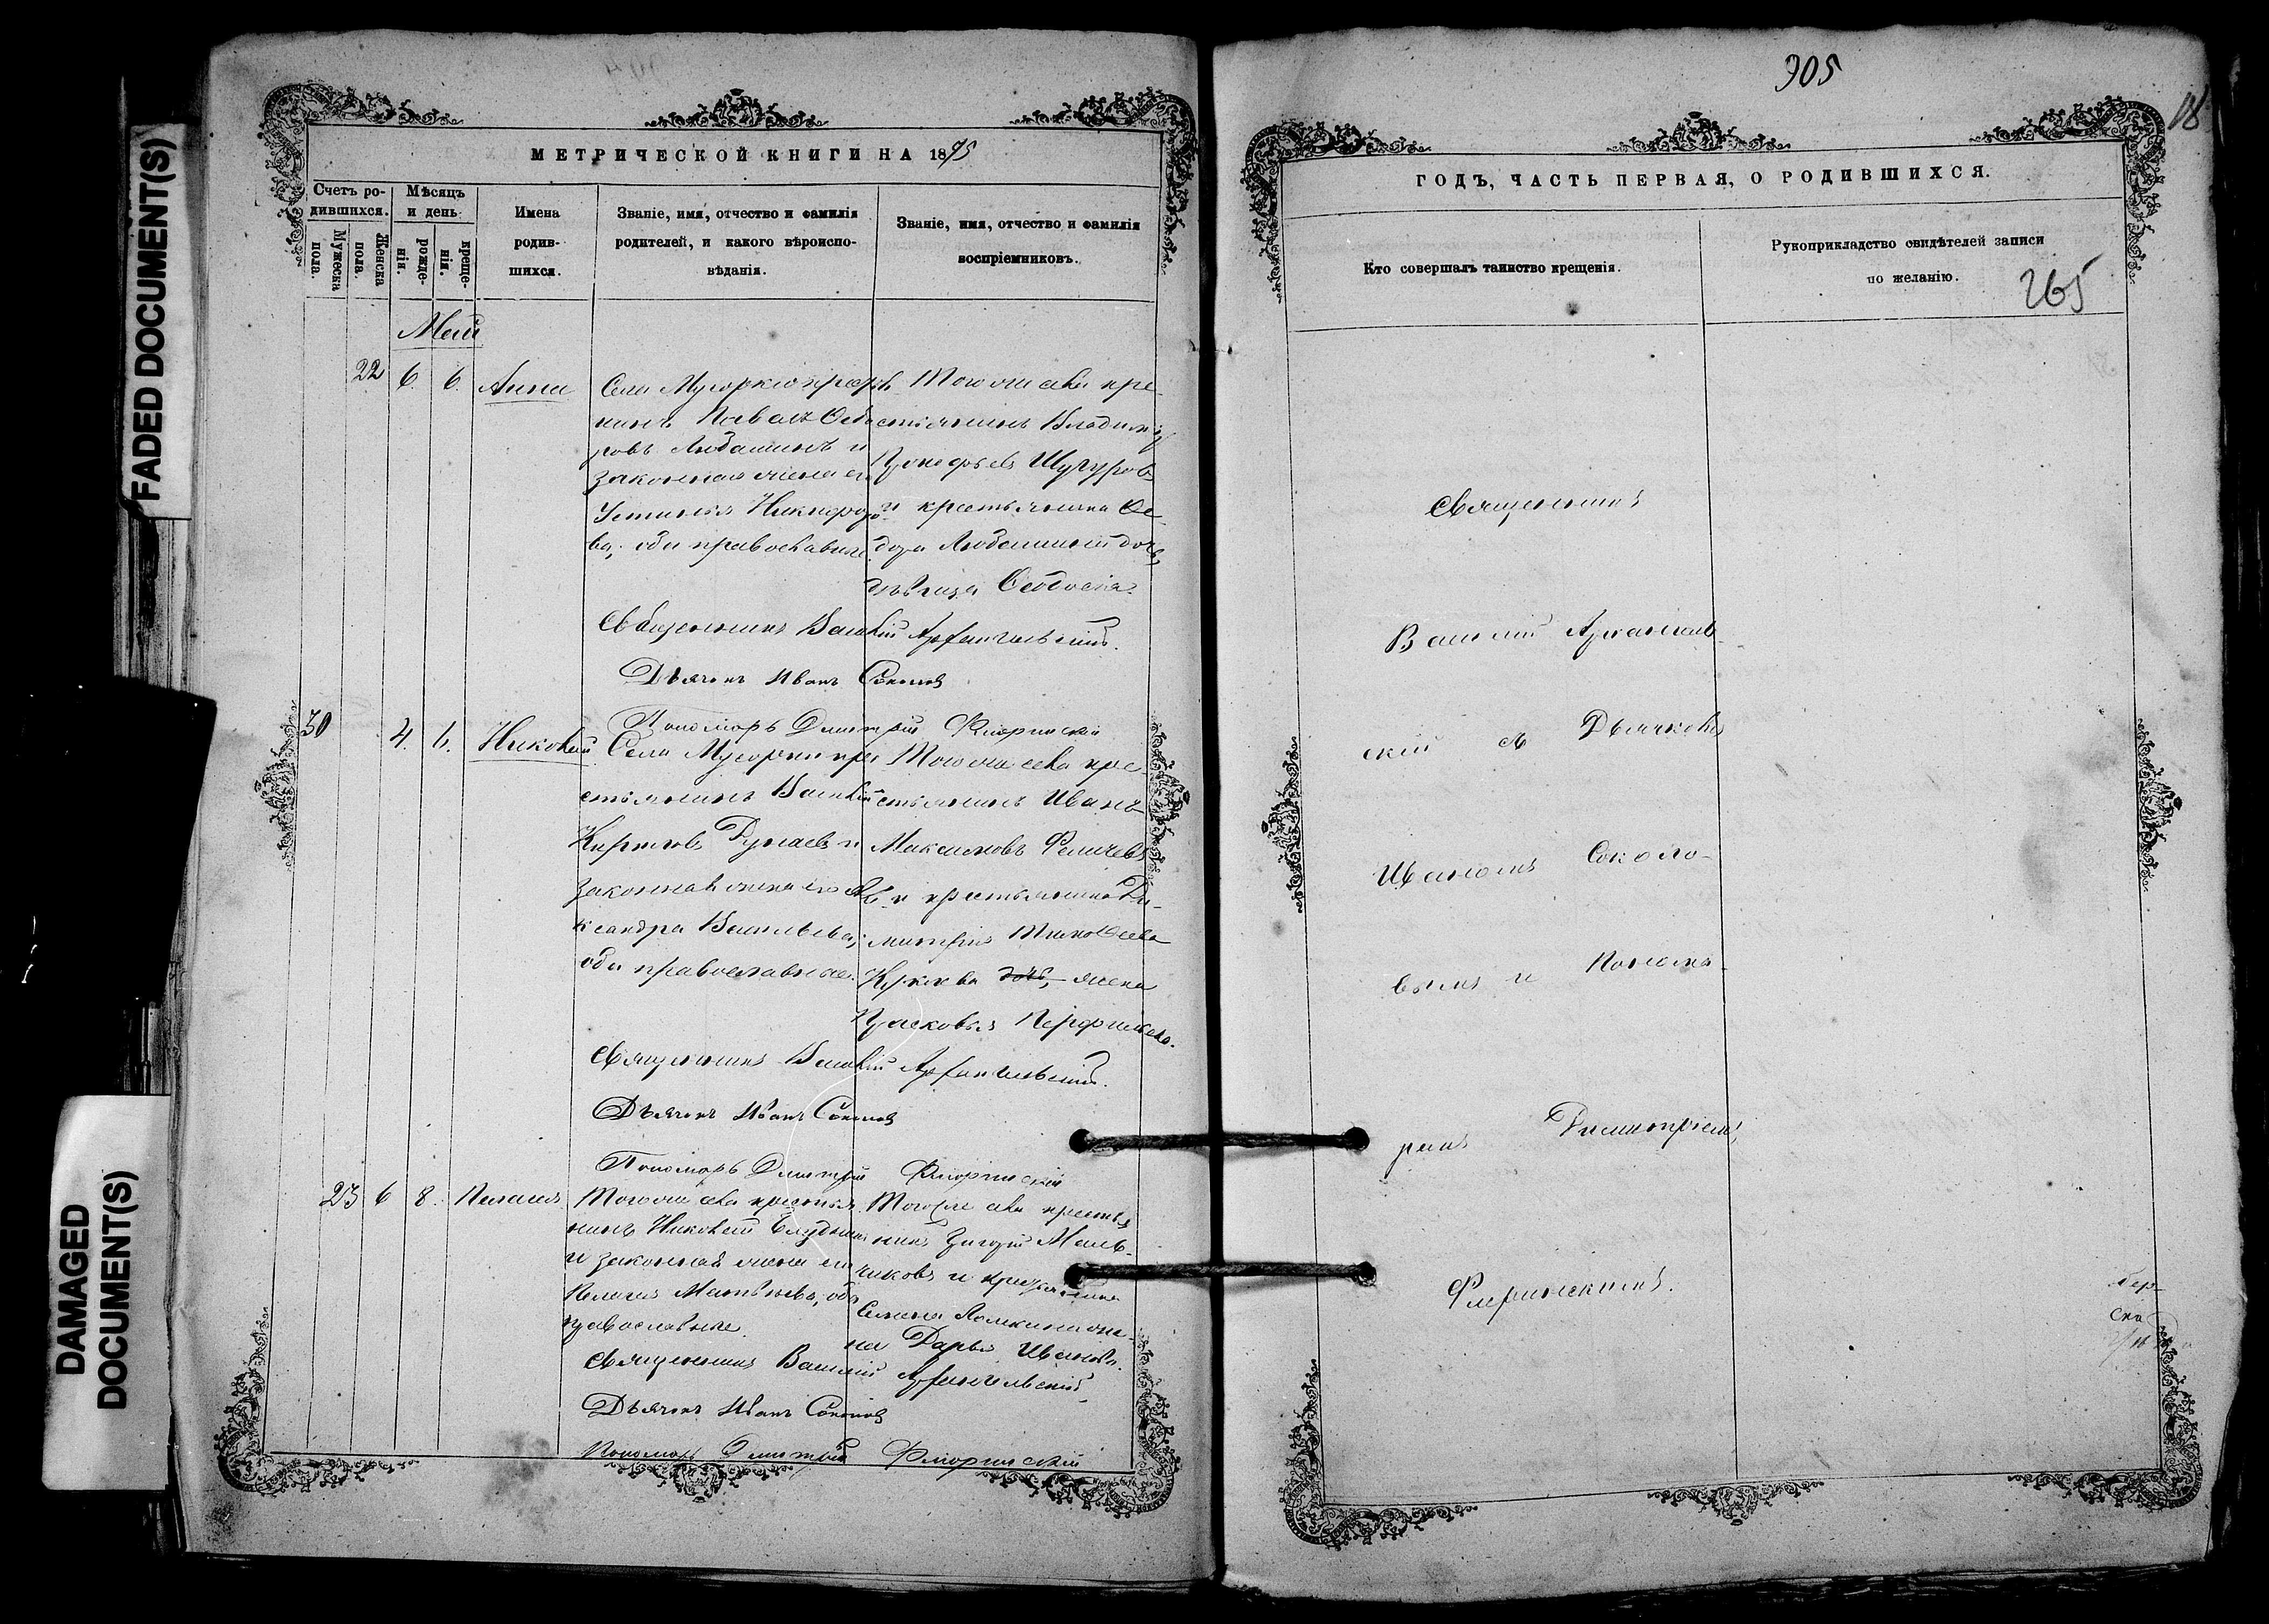 FADED DOCUMENT(S)
DAMAGED
DOCUMENT(S)
МЕТРИЧЕСКОЙ КНИГИ НА 1875
Счетъ ро-
дившихся.
Мужеска
пола.
Женска
пола.
Мѣсяцъ
и день
рожде-
нія.
креще-
нія.
Имена
родив-
шихся.
Званіе, имя, отчество и фамилія
родителей, и какого вѣроиспо-
вѣданія.
Званіе, имя, отчество и фамилія
воспріемниковъ.
Май
22 6. 6. Анна
Села Мусорки
нинъ Павелъ
ровъ Любашинъ и
законная жена его
Устинья Никифоро
ва; оба православные.
Того же села кре
стьянинъ Владимир
Прокофьевъ Шугуровъ
и крестьянина Ѳе
дора дочь,
дѣвица Ѳеодосія.
Священникъ Василій Архангельскій.
Дьячекъ Иванъ Соколовъ
Пономарь Димитрій Флоринскій
30 4. 6. Николай
Села Мусорки кре
стьянинъ Василій
Кириловъ Дунаевъ и
законная жена его Але
ксандра Васильева;
оба православные.
Того же села кре
стьянинъ Иванъ
Максимовъ
и крестьянина Ди-
митрія Тимоѳеева
жена
Прасковья Перфильева.
Священникъ Василій Архангельскій.
Дьячекъ Иванъ Соколовъ
Пономарь Димитрій Флоринскій
23 6 8. Пелагея
Того же села крестья
нинъ Николай
и законная жена его
Пелагея Матвѣева, оба
православные.
Того же села крестья
нинъ Григорій Мель-
никовъ и крестьянина
Семена же-
на Дарья Иванова.
Священникъ Василій Архангельскій
Дьячекъ Иванъ Соколовъ
Пономарь Димитрій Флоринскій
305
18
ГОДЪ, ЧАСТЬ ПЕРВАЯ, О РОДИВШИХСЯ.
Кто совершалъ таинство крещенія.
Рукоприкладство свидѣтелей записи
по желанію.
265
Священникъ
Василій Архангель-
скій съ Дьячкомъ
Иваномъ Соколо-
вымъ и Понома-
ремъ Димитріемъ
Флоринскимъ.